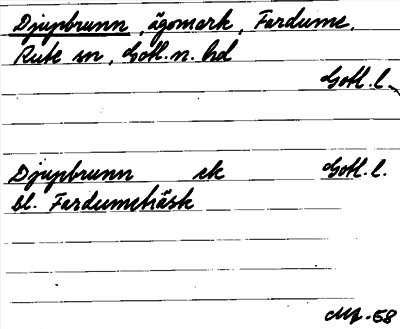 Djupbrunn, ägomark, Fardume,
Rute sn, Gotl. n. hd
Gotl. l.
Djupbrunn ek Gotl. l.
bl. Fardumeträsk
-58